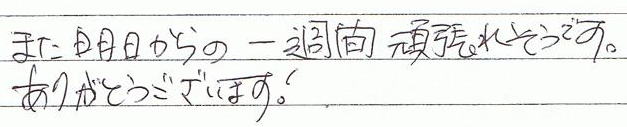 また明日からの一週間頑張れそうです。
ありがとうございます!